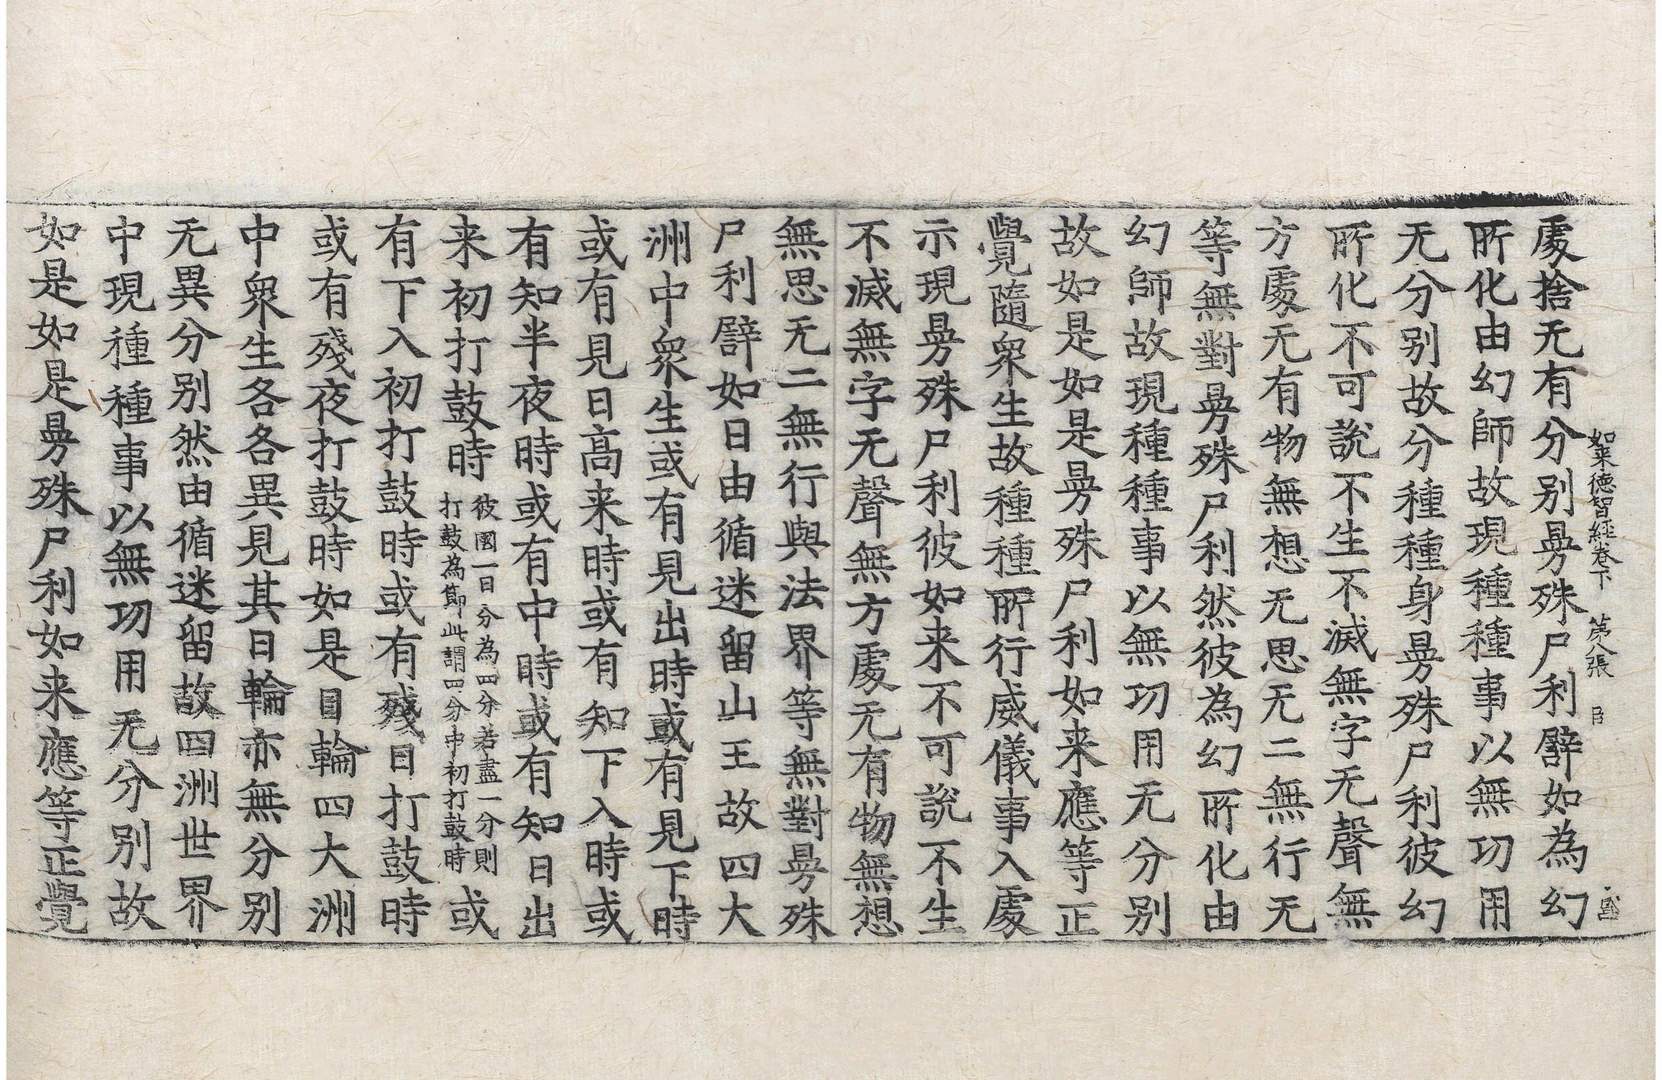 如来德智經卷下 第八張 臣 昌
處捨无有分别㬅殊尸利譬如為幻
所化由幻師故現種種事以無功用
无分别故分種種身㬅殊尸利彼幻
所化不可說不生不滅無字无聲無
方處无有物無想无思无二無行无
等無對㬅殊尸利然彼為幻所化由
幻師故現種種事以無功用无分别
故如是如是㬅殊尸利如来應等正
覺隨衆生故種種所行威儀事入處
示現㬅殊尸利彼如来不可說不生
不滅無字无聲無方處无有物無想
無思无二無行與法界等無對㬅殊
尸利譬如日由循迷留山王故四大
洲中衆生或有見出時或有見下時
或有見日高来時或有知下入時或
有知半夜時或有中時或有知日出
来初打鼓時彼國一日分為四分若盡一分則打鼓為節此謂四分中初打鼓時或
有下入初打鼓時或有殘日打鼓時
或有殘夜打鼓時如是日輪四大洲
中衆生各各異見其日輪亦無分别
无異分别然由循迷留故四洲世界
中現種種事以無功用无分别故
如是如是㬅殊尸利如来應等正覺